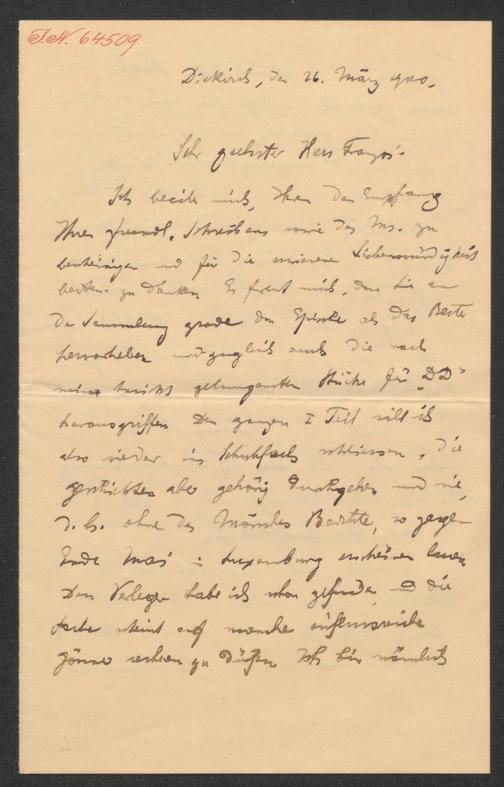 I.N. 64509
Diekirch, den 26. März 1900.
Sehr geehrter Herr
Ich beeile mich, Ihnen den Empfang
Ihres freundl. Schreibens sowie des Ms. zu
bescheinigen und für die erwiesene Liebenswürdigkeit
bestens zu danken. Es freut mich, dass Sie an
der Sammlung grade das Epische als das Beste
hervorheben und zugleich auch die nach
gelungensten Stücke für „DD"
herausgriffen. Den ganzen I Teil will ich
also wieder ins Schubfach schliessen, die
Geschichten aber gehörig durchgehen und sie,
d. h. ohne des Mönches Beichte, so gegen
Ende Mai in Luxemburg erscheinen lassen.
Den Verleger habe ich schon gefunden und die
Sache scheint auf manche einflussreiche
Gönner rechnen zu dürfen. Ich bin nämlich